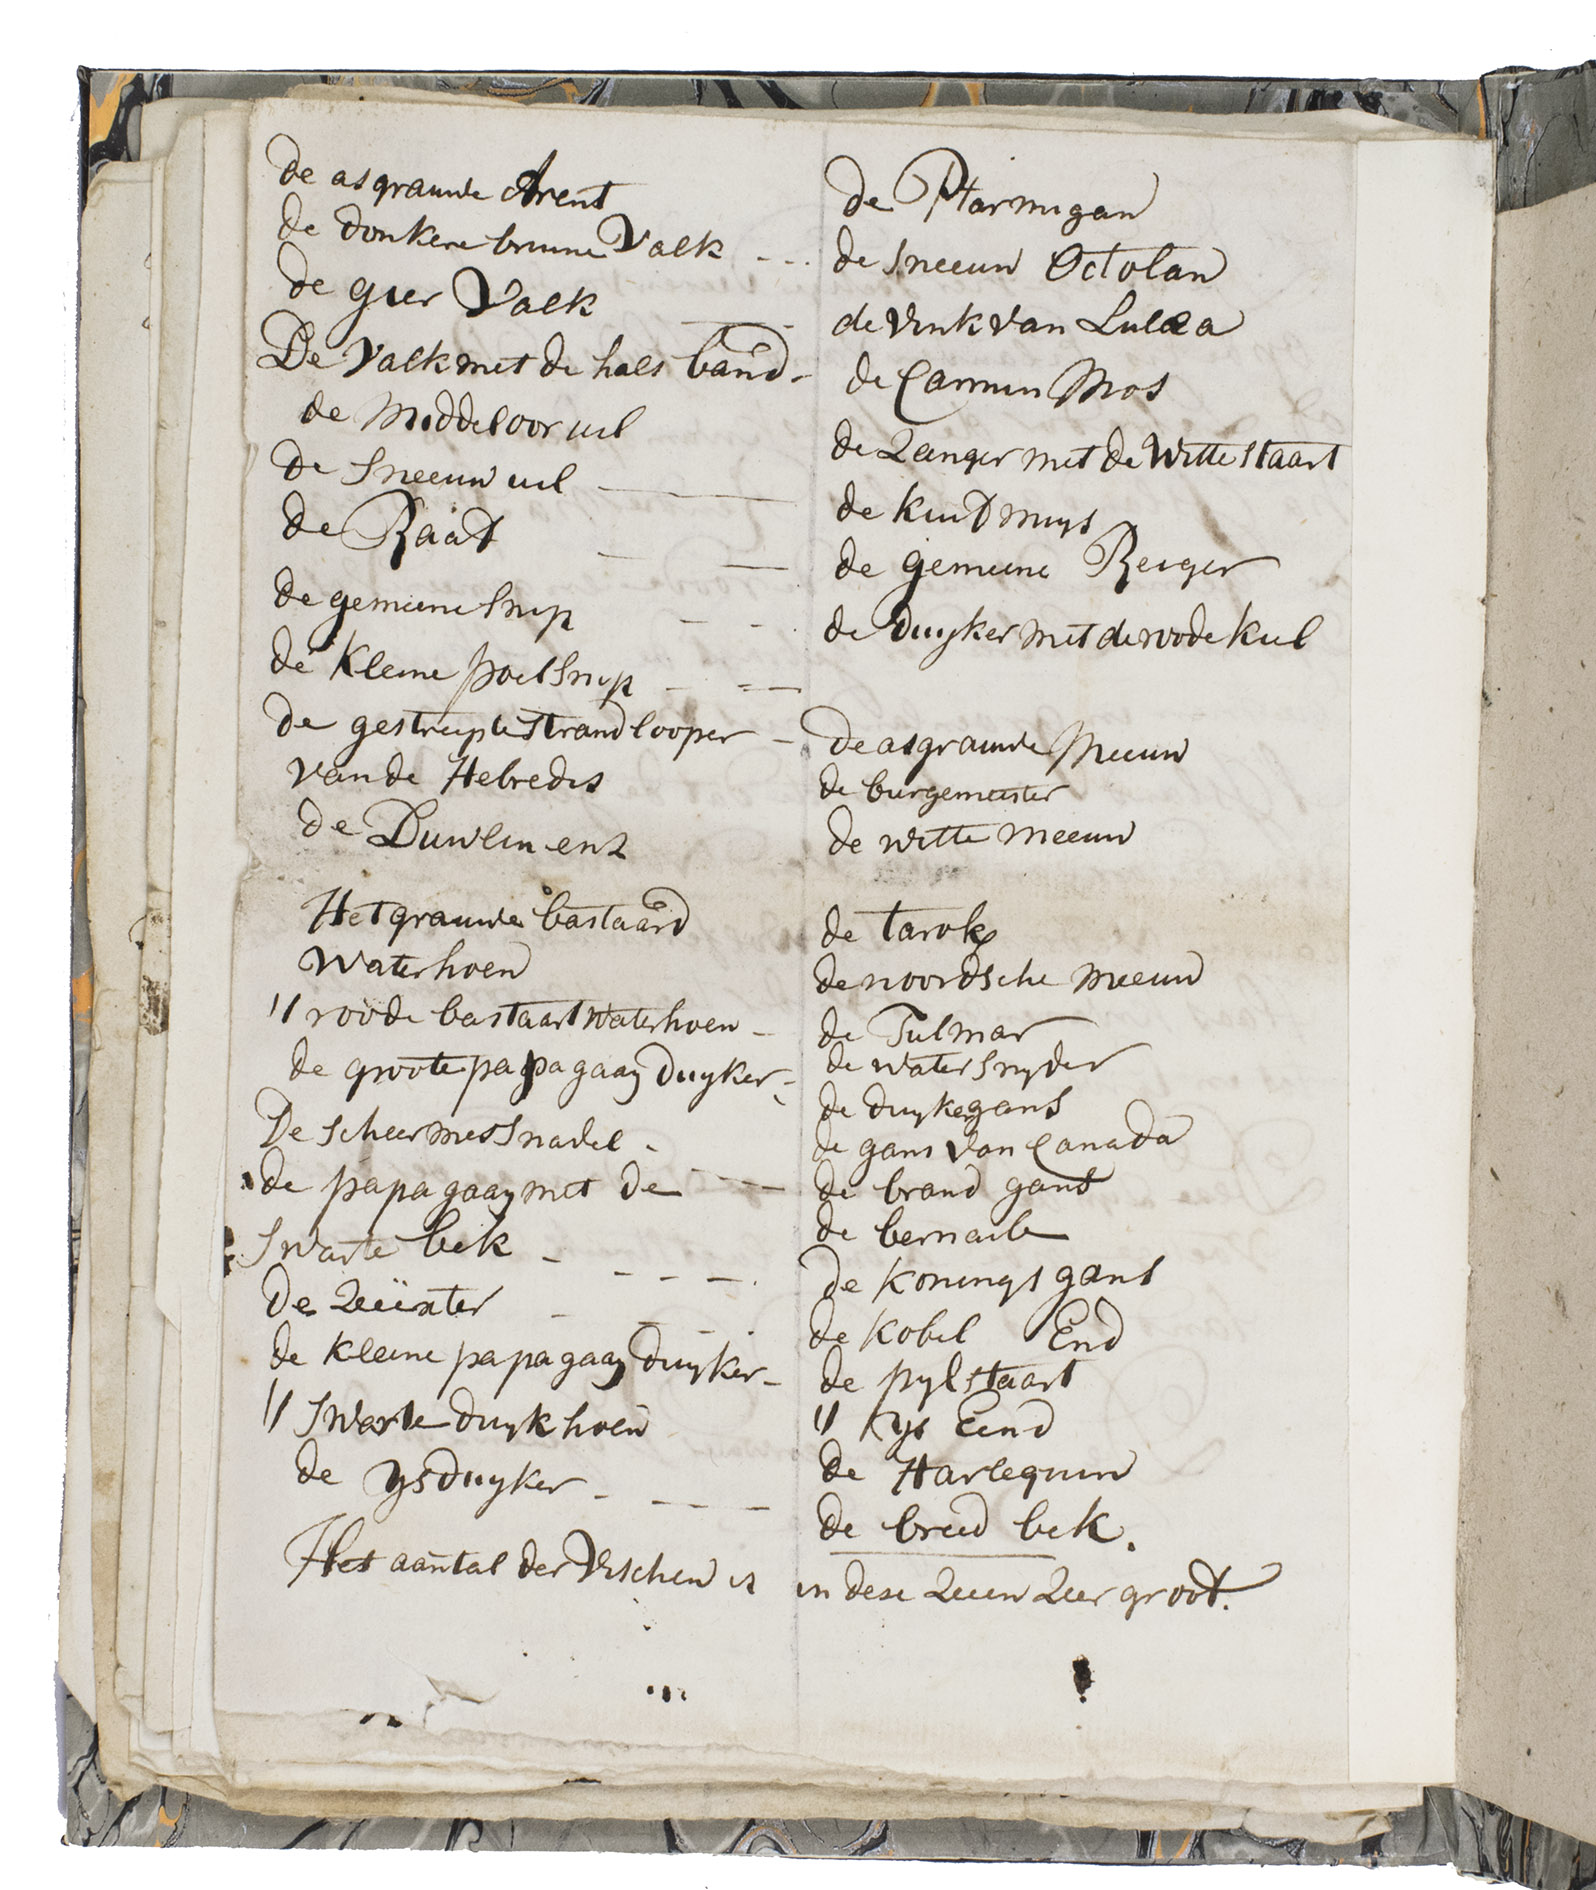 de asgrauwe Arent
de donkere bruine Valk
de gier Valk
De Valk met de hals band
de Middel oor uil
de Sneeuw uil
de Raaf
de gemeene Snip
de kleine poelsnip
de gestreepte Strandlooper
van de Hebredes
de
Het grauwe bastaard
Waterhoen
" roode bastaart waterhoen
de groote papagaay duyker
De scheermessnavel
de papagaay met de
Swarte bek
De
de kleine papagaay duyker
" Swarte duykhoen
de ysduyker
de Ptarmigan
de Sneeuw Octolan
de Vink van Lulea
de Carmin Mos
de Zanger met de Witte Staart
de muys
de gemeene Reiger
de Duyker met de roode keel
de asgrauwe Meeuw
de burgemeester
de witte meeuw
de Tarok
de noordsche meeuw
de Fulmar
de water snyder
de duykergans
de gans van Canada
de brand gans
de bernacle
de konings gans
de kobel End
de pylstaart
" Eend
de Harlequin
de breed bek.
Het aantal der Vischen is in dese Zeeen Zeer groot.